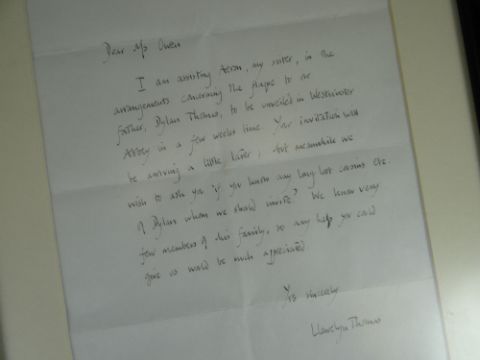 Dear Ms Owen
I am assisting Aeron, my sister, in the
arrangements concerning the plaque to our
father, Dylan Thomas, to be unveiled in Westminster
Abbey in a few weeks time. Your invitation will
be arriving a little later, but meanwhile we
wish to ask you if you know any long lost cousins etc.
of Dylan whom we should invite? We know very
few members of his family, so any help you could
give us would be much appreciated
Yrs sincerely
Llewelyn Thomas